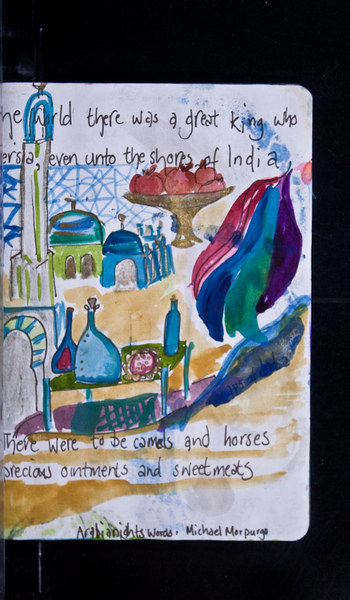 he world there was a great king who
ersia, even unto the shores of India,
There were to be camels and horses
precious ointments and sweetmeats
Arabianights words. Michael Morpurgo